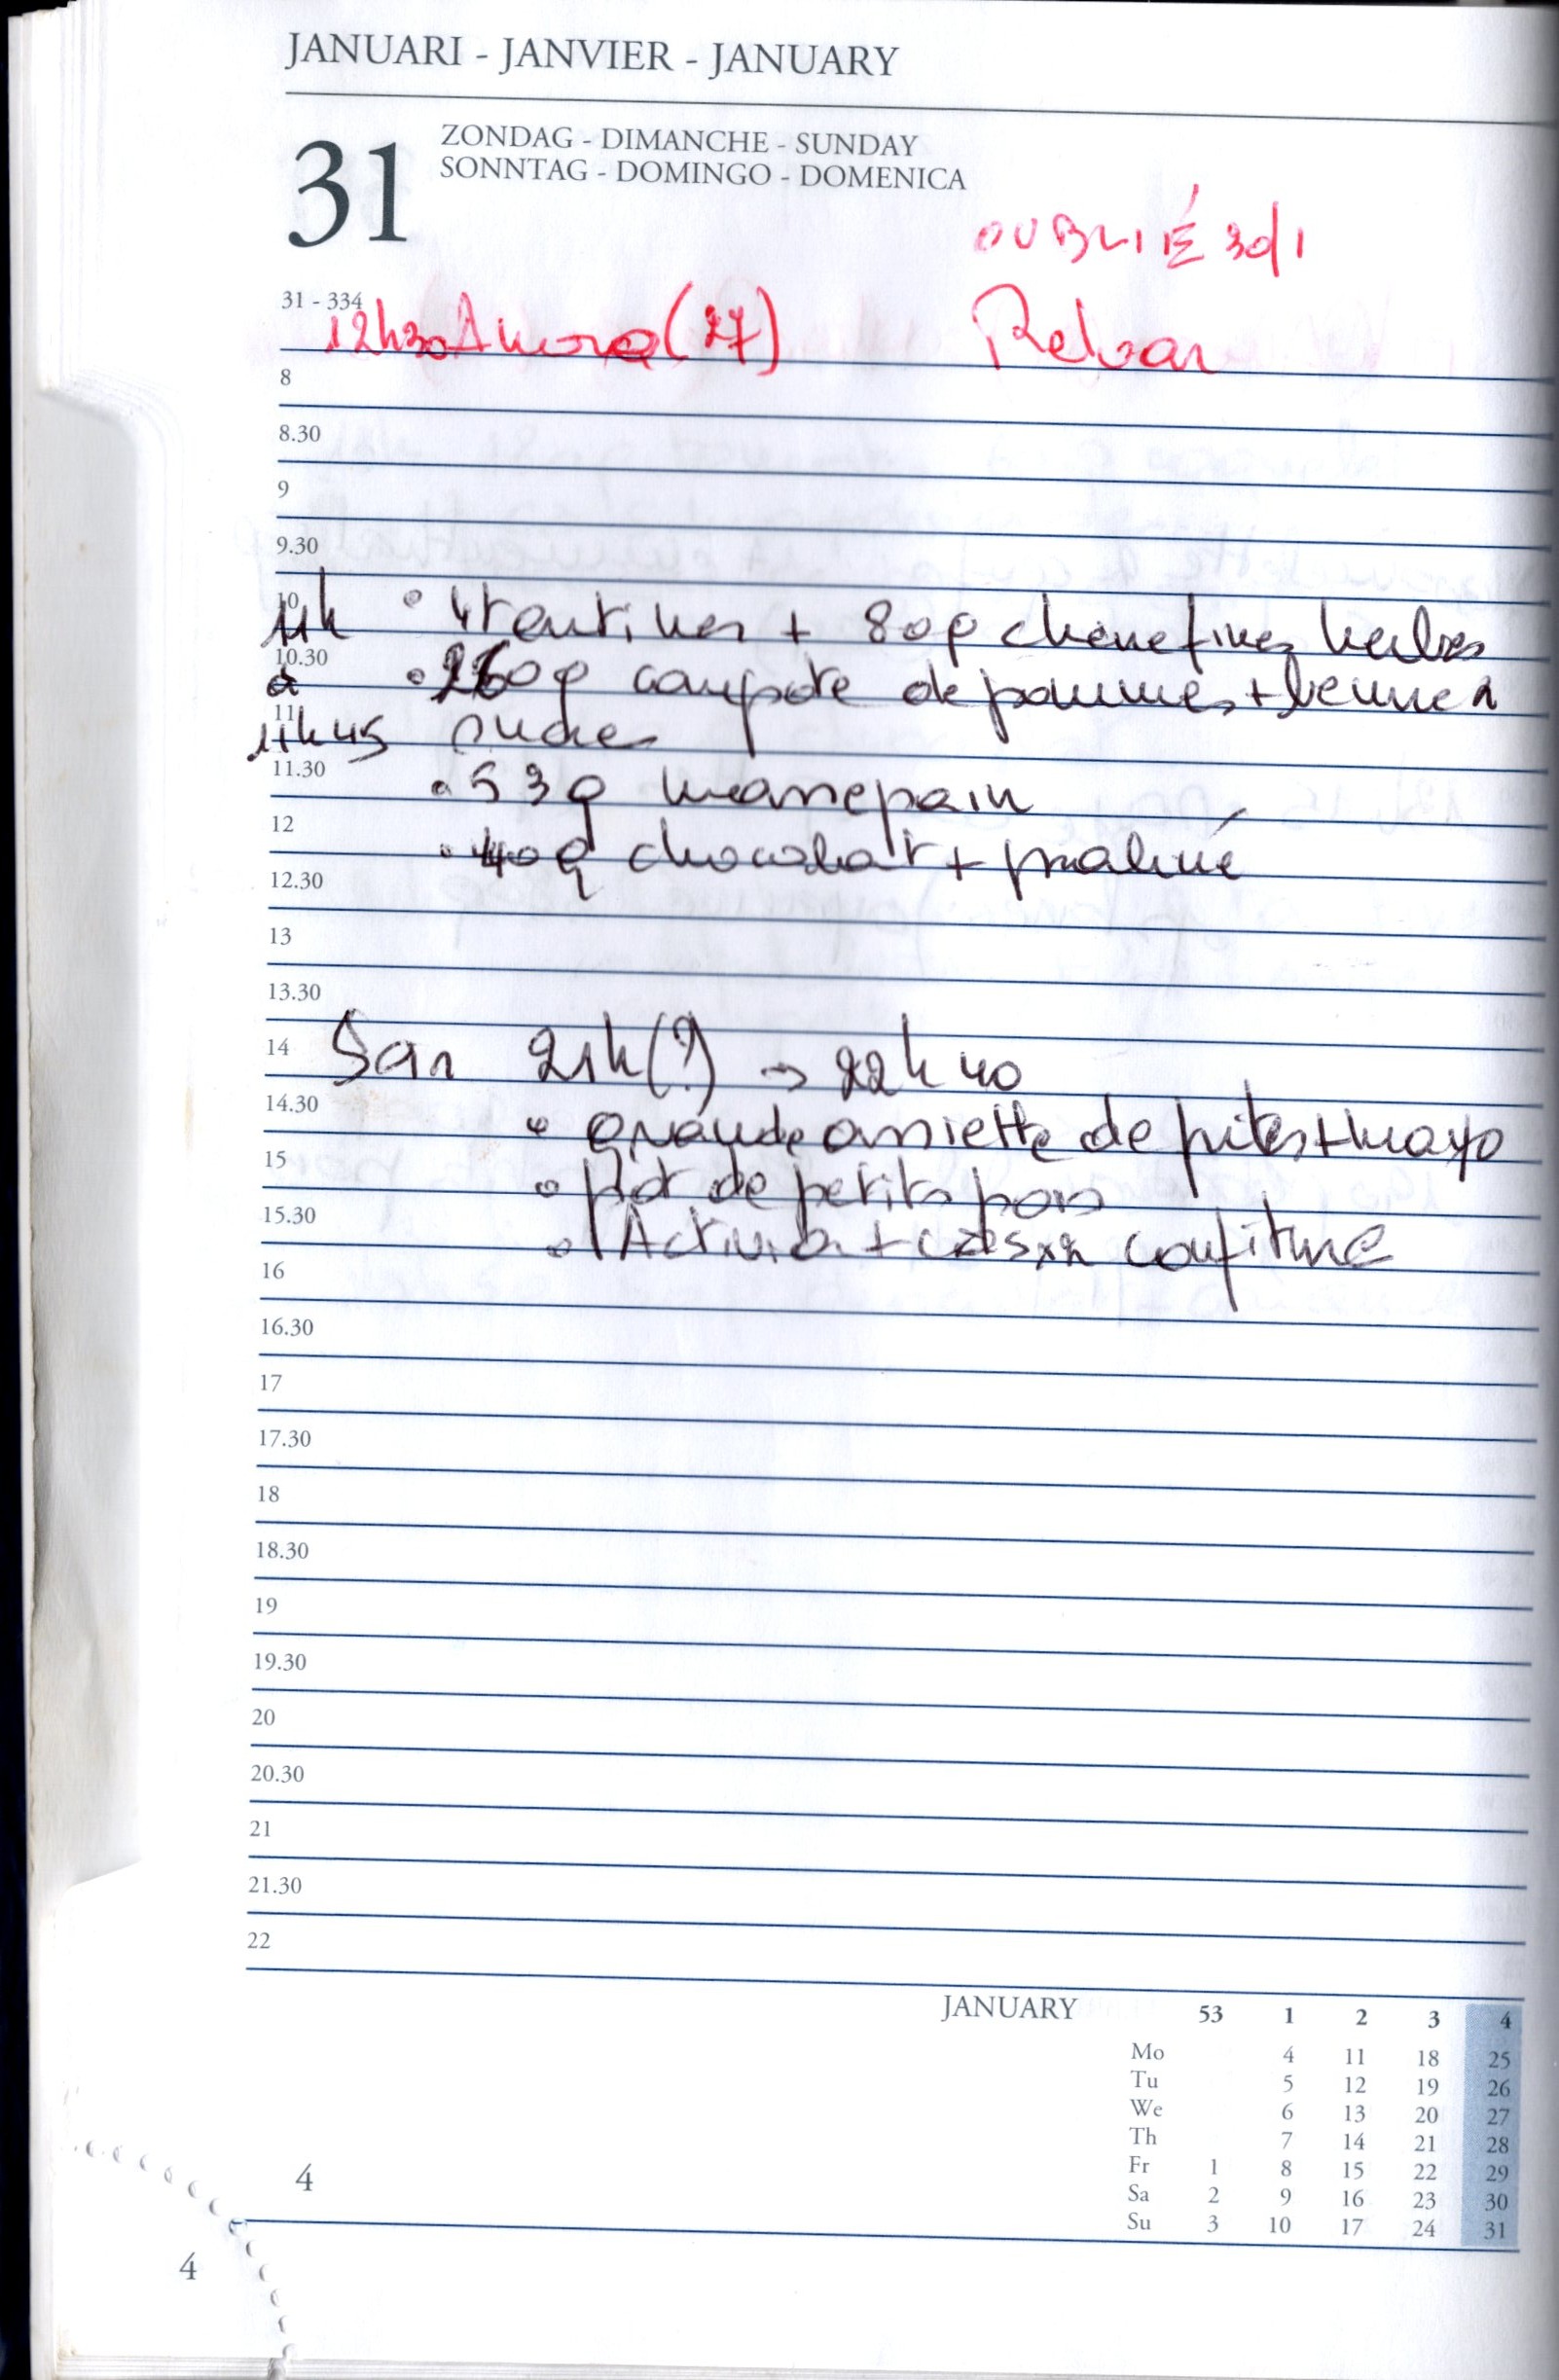 JANUARI - JANVIER - JANUARY
31
ZONDAG - DIMANCHE - SUNDAY
SONNTAG - DOMINGO - DOMENICA
OUBLIÉ 30/1
31 - 334
12h30 (27)
8
8.30
9
9.30
10
11h • 4 tartines + 80g fines herbes
10.30
à • 260g compote de pommes +
11
11h45 sucre
11.30
• 53g massepain
12
• 40g chocolat + praliné
12.30
13
13.30
14
Soir 21h(?) → 22h40
14.30
• grande assiette de frites + mayo
15
• pot de petits pois
15.30
• 1 Activia + càs x2 confiture
16
16.30
17
17.30
18
18.30
19
19.30
20
20.30
21
21.30
22
JANUARY 53 1 2 3 4
Mo 4 11 18 25
Tu 5 12 19 26
We 6 13 20 27
Th 7 14 21 28
Fr 1 8 15 22 29
Sa 2 9 16 23 30
Su 3 10 17 24 31
4
4